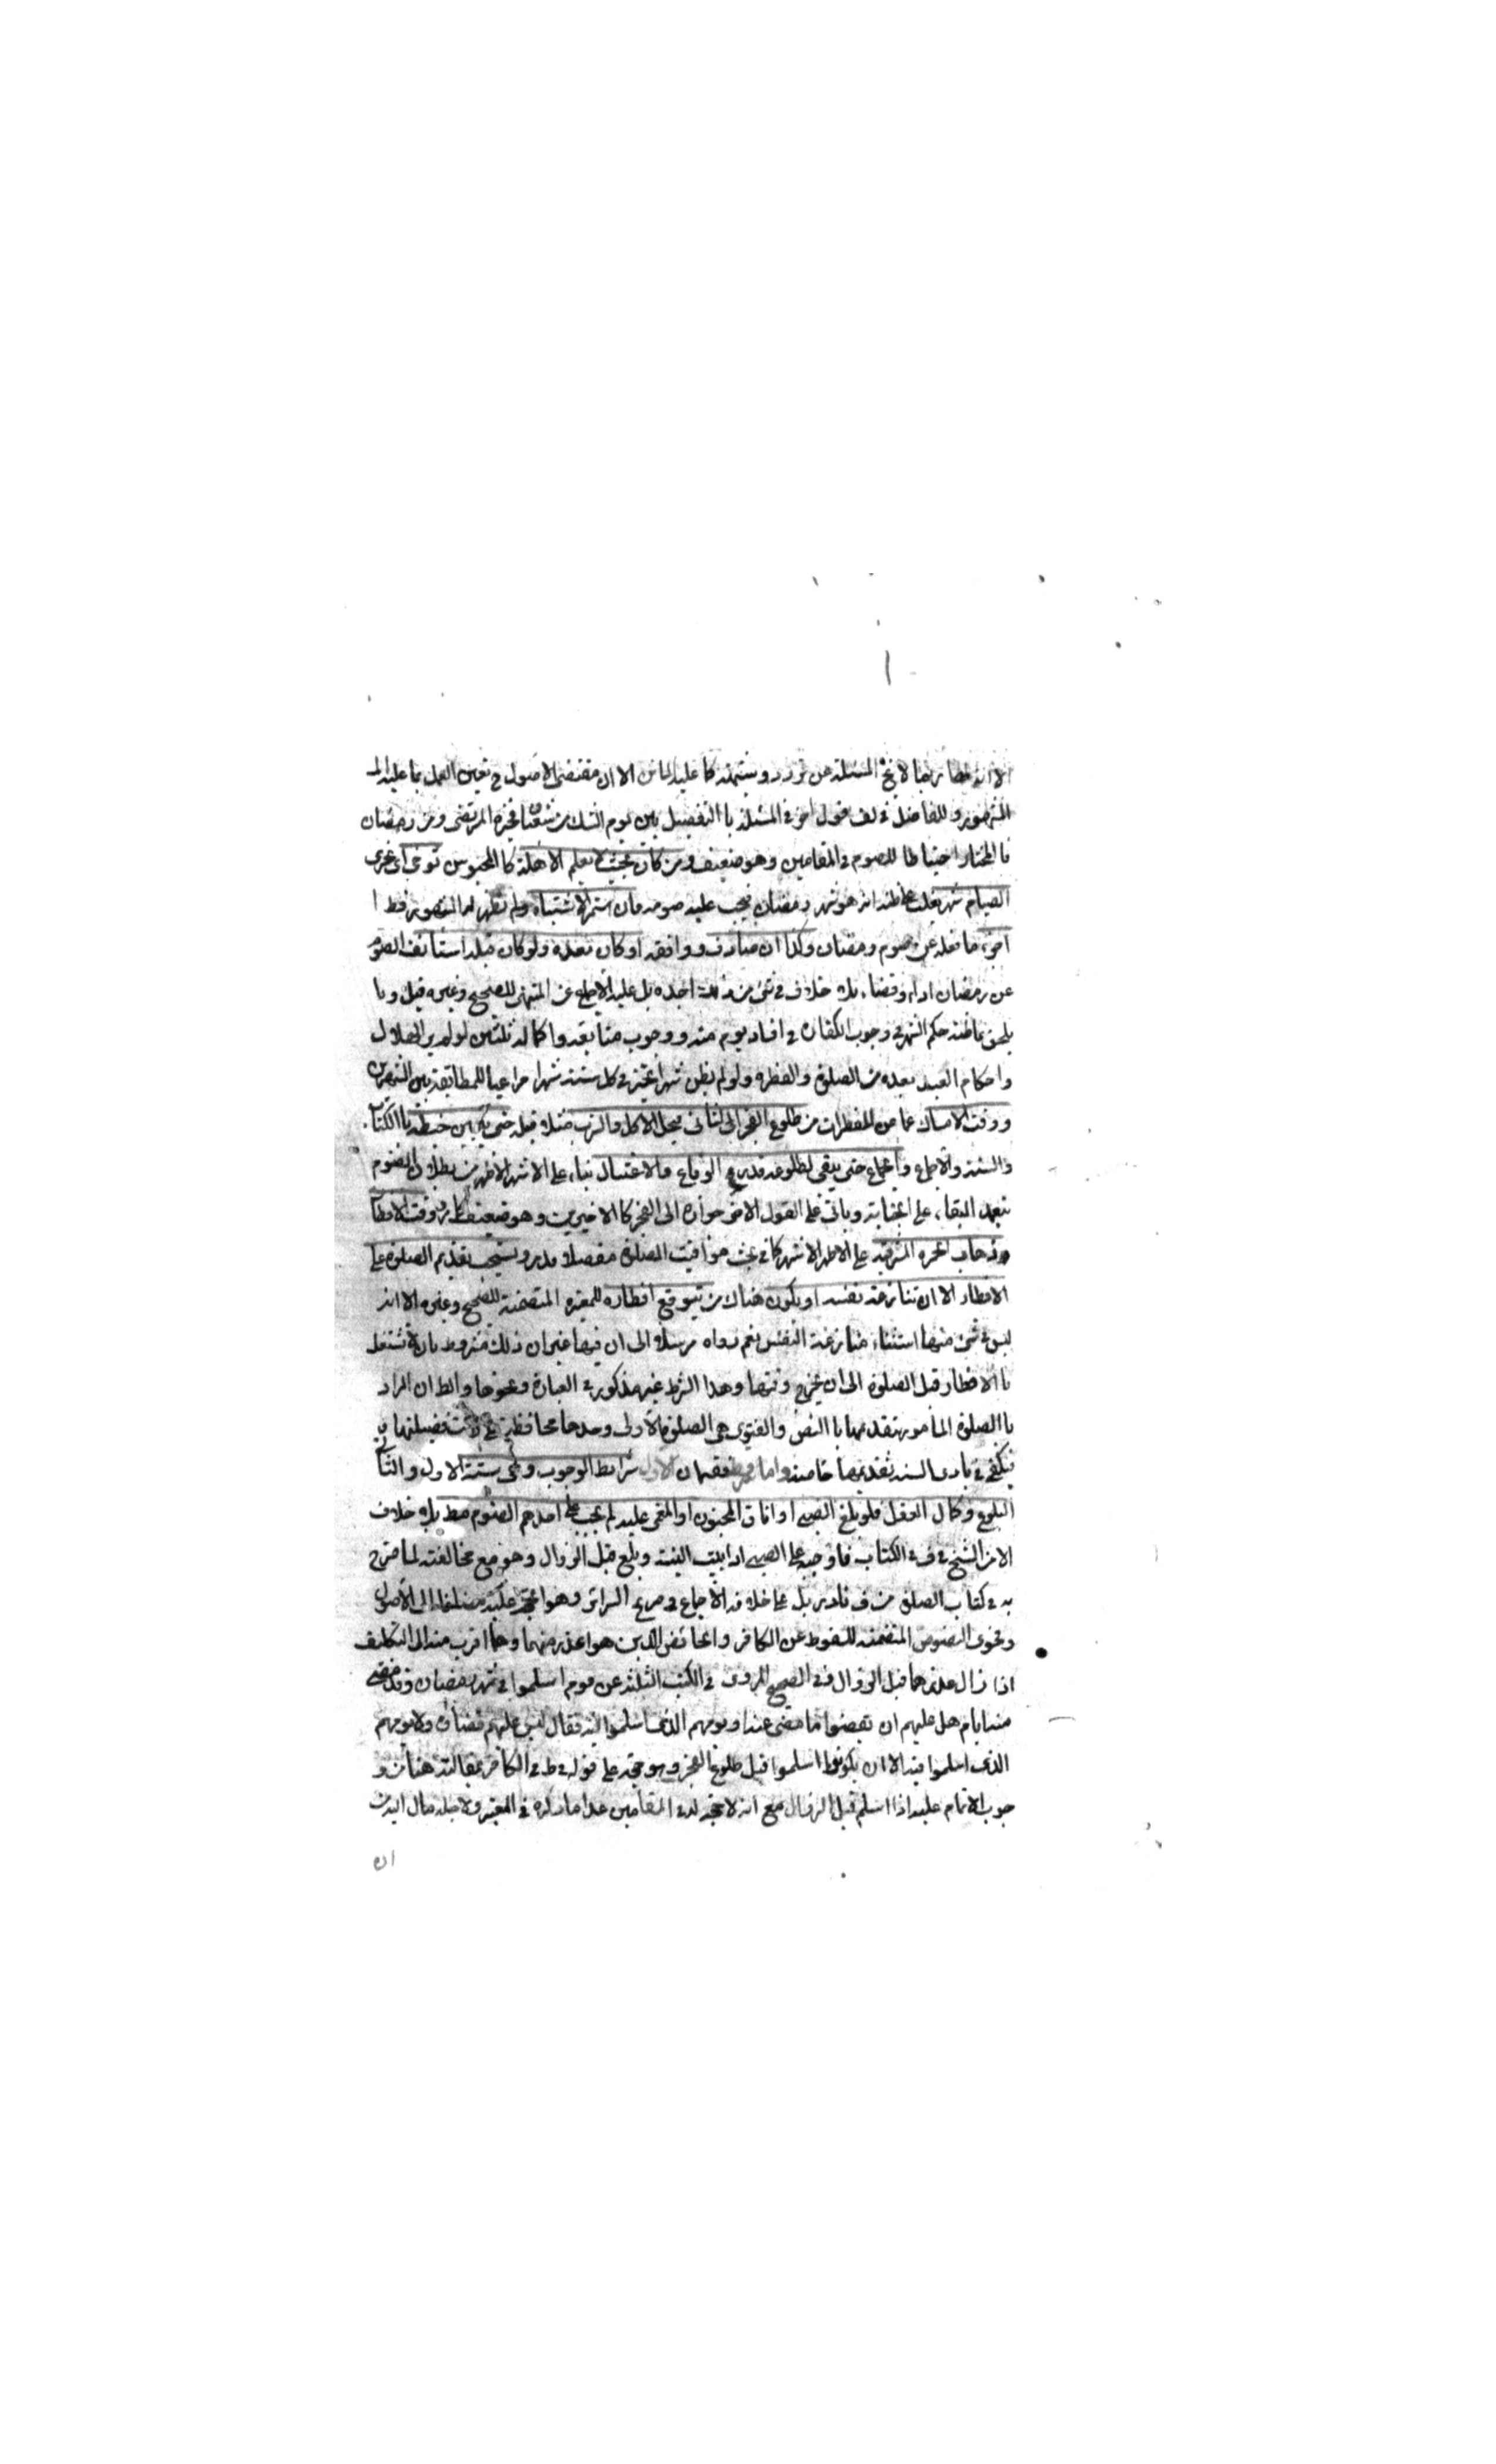 الا ان قصارهما لا يخ المسئلة عن تردد وشبهة كما عليه الماتن الا ان مقتضى الاصول ح تعين العمل بما عليه
المشهور وللفاضل في لف قول اخر في المسئلة بالتفصيل بين يوم الشك من شعبان فخيرة المرتضى ومن رمضان
فالمختار احتياطا للصوم في المقامين وهو ضعيف ومن كان بحيث لا يعلم الاهلة كالمحبوس توخى اى تحرى
الصيام شهر يغلب على ظنه انه هو شهر رمضان فيجب عليه صومه فان استمر الاشتباه ولم تظهر له الشهور قط ا
اجزء ما فعله عن صوم رمضان وكذا ان صادف ووافقه او كان بعده ولو كان قبله استانف الصوم
عن رمضان اداء وقضاء بلا خلاف في شئ من ذلك اجده بل عليه الاجماع عن المنتهى للصحيح وغيره قيل و
يلحق بما ظنه حكم الشهر في وجوب الكفارة في افساد يوم منه ووجوب متابعته واكماله ثلثين لو لم ير الهلال
واحكام العيد بعده من الصلوة والفطرة ولو لم يظن شهرا تخير في كل سنة شهرا مراعيا للمطابقة بين الشهرين
ووقت الامساك عما من المفطرات من طلوع الفجر الثاني فيحل الاكل والشرب قبله حتى يتبين خيطه بالكتاب
والسنة والاجماع والجماع حتى يبقى لطلوعه قدر الوقاع والاغتسال بناء على الاشهر الاظهر من بطلان الصوم
بتعمد البقاء على الجنابة وياتي على القول الاخر جوازه الى الفجر كالاخيرين وهو ضعيف ووقت الافطار
ذهاب الحمرة المشرقية على الاظهر الاشهر كما في بحث مواقيت الصلوة مفصلا قد مر ويستحب تقديم الصلوة على
الافطار الا ان تنازعه نفسه او يكون هناك من يتوقع افطاره للمعتبرة المتضمنة للصحيح وغيره الا انه
ليس في شئ منها استثناء منازعة النفس نعم رواه مرسلا الى ان فيها غير ان ذلك مشروط بان لا تشتغل
بالافطار قبل الصلوة الى ان يخرج وقتها وهذا الشرط غير مذكور في العبارة ونحوها والظ ان المراد
بالصلوة المامور بتقديمها بالنص والفتوى هي الصلوة الاولى وحدها محافظة على وقت فضيلتها
فيكفي في تادى السنة تقديمها خاصة واما شرطه فقسمان الاول شرائط الوجوب وهى ستة الاول والثانى
البلوغ وكمال العقل فلو بلغ الصبى او افاق المجنون او المغمى عليه لم يجب على احدهم الصوم بلا خلاف
الا من الشيخ في ف في الكتاب فاوجبه على الصبى اذا بيت النية وبلغ قبل الزوال وهو مع مخالفته لما صرح
به في كتاب الصلوة من ف نادر بل على خلافه الاجماع في صريح السرائر وهو الحجة عليه مضافا الى الاصول
وفحوى النصوص المتضمنة للسقوط عن الكافر والحائض الذين هو اعذر منهما وهما اقرب منه الى التكليف
اذا زال عذرهما قبل الزوال ففى الصحيح المروى في الكتب الثلثة عن قوم اسلموا في شهر رمضان وقد مضى
منه ايام هل عليهم ان يقضوا ما مضى عنه او يومهم الذى اسلموا فيه فقال ليس عليهم قضاء ولا يومهم
الذى اسلموا فيه الا ان يكونوا اسلموا قبل طلوع الفجر وهو حجة على قوله في ط في الكافر بمقالته هنا من و
جوب الاتمام عليه اذا اسلم قبل الزوال مع انه لا حجة له في المقامين عدا ما ذكره في المعتبر ولاجله مال اليه من
ان